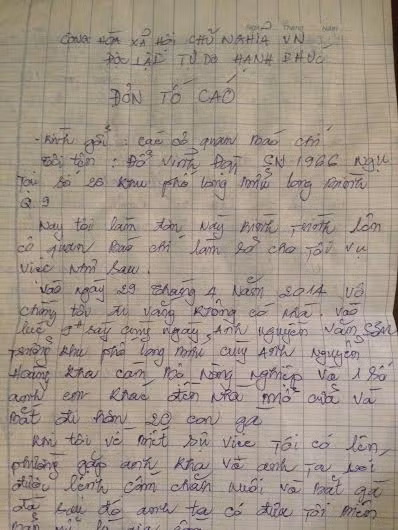 Ngày Tháng Năm
CỘNG HÒA XÃ HỘI CHỦ NGHĨA VN
ĐỘC LẬP TỰ DO HẠNH PHÚC
ĐƠN TỐ CÁO
- Kính gởi : các cơ quan báo chí
Tôi tên : Đỗ Vinh SN 1966 Ngụ
Tại số 28 khu phố long long
Q 9
Nay tôi làm đơn này kính trình lên
cơ quan báo chí làm cho tôi vụ
việc như sau.
Vào ngày 29 tháng 4 Năm 2014 vợ
chồng tôi đi vắng không có nhà. vào
lúc cùng ngày, Anh nguyễn văn
khu phố long cùng Anh nguyễn
Hoàng kha cán bộ nông nghiệp và 1 số
anh em khác đến nhà mở cửa và
bắt đi hơn 20 con gà
khi tôi về biết sự việc tôi có lên
phường gặp anh kha và anh ta nói
được lệnh cấm chăn nuôi và bắt gà
sau đó anh ta có đưa tôi